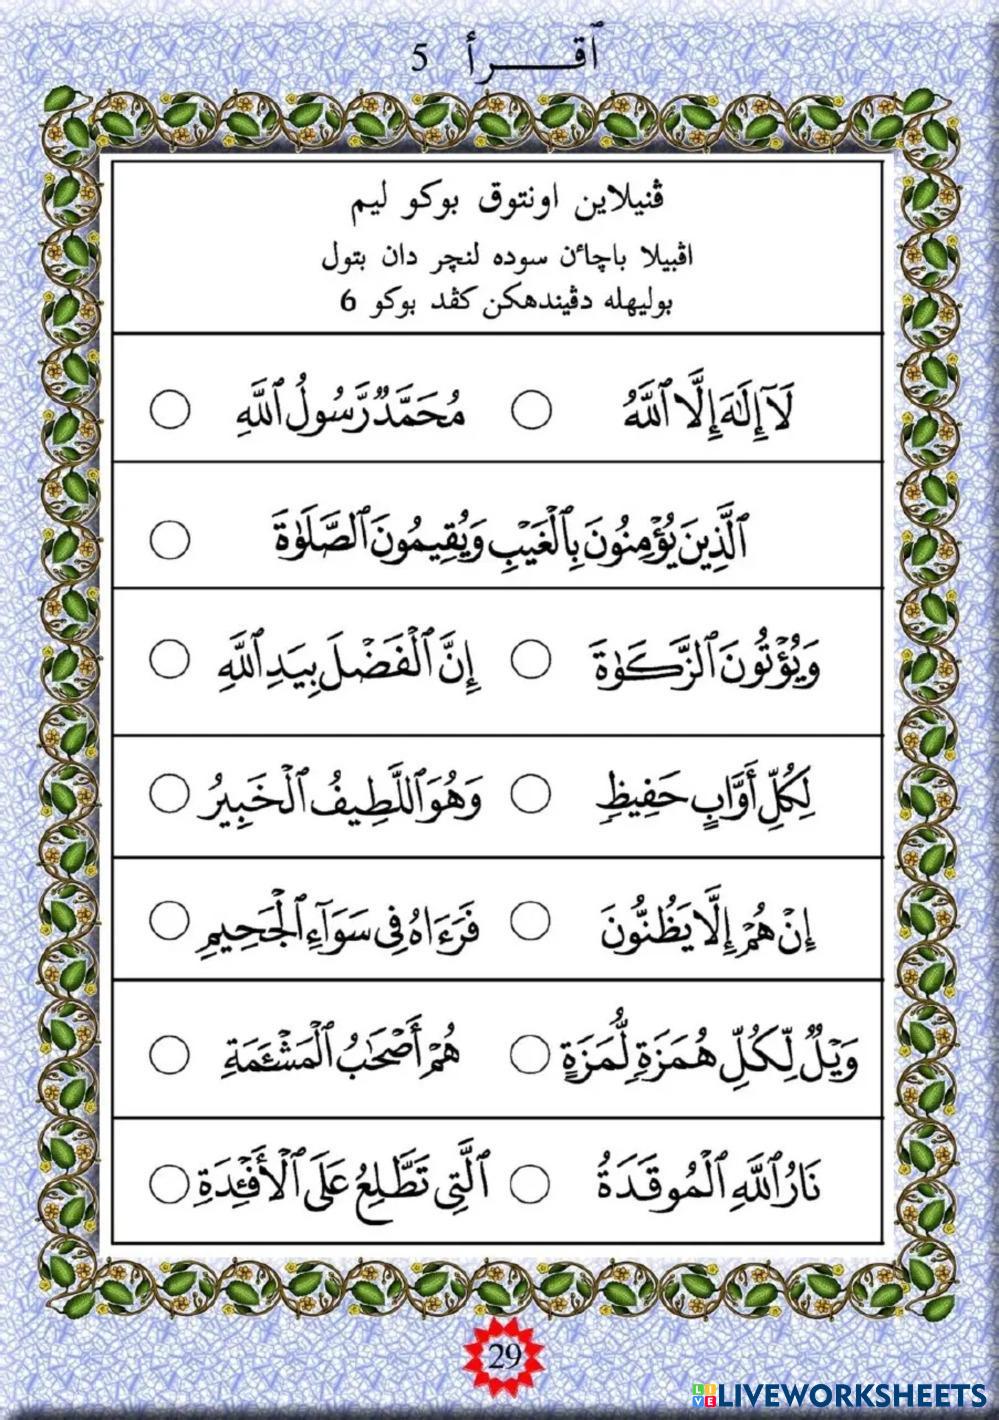 ٱقـــــرأ 5
ڤنيلاين اونتوق بوكو ليم
اڤبيلا باچاٴن سوده لنچر دان بتول
بوليهله دڤيندهكن كڤد بوكو 6
لَآ إِلَـٰهَ إِلَّا ٱللَّهُ ○ مُحَمَّدٌ رَّسُولُ ٱللَّهِ ○
ٱلَّذِينَ يُؤْمِنُونَ بِٱلْغَيْبِ وَيُقِيمُونَ ٱلصَّلَوٰةَ ○
وَيُؤْتُونَ ٱلزَّكَوٰةَ ○ إِنَّ ٱلْفَضْلَ بِيَدِ ٱللَّهِ ○
لِكُلِّ أَوَّابٍ حَفِيظٍ ○ وَهُوَ ٱللَّطِيفُ ٱلْخَبِيرُ ○
إِنْ هُمْ إِلَّا يَظُنُّونَ ○ فَرَءَاهُ فِى سَوَآءِ ٱلْجَحِيمِ ○
وَيْلٌ لِّكُلِّ هُمَزَةٍ لُّمَزَةٍ ○ هُمْ أَصْحَـٰبُ ٱلْمَشْـَٔمَةِ ○
نَارُ ٱللَّهِ ٱلْمُوقَدَةُ ○ ٱلَّتِى تَطَّلِعُ عَلَى ٱلْأَفْـِٔدَةِ ○
29
LIVEWORKSHEETS